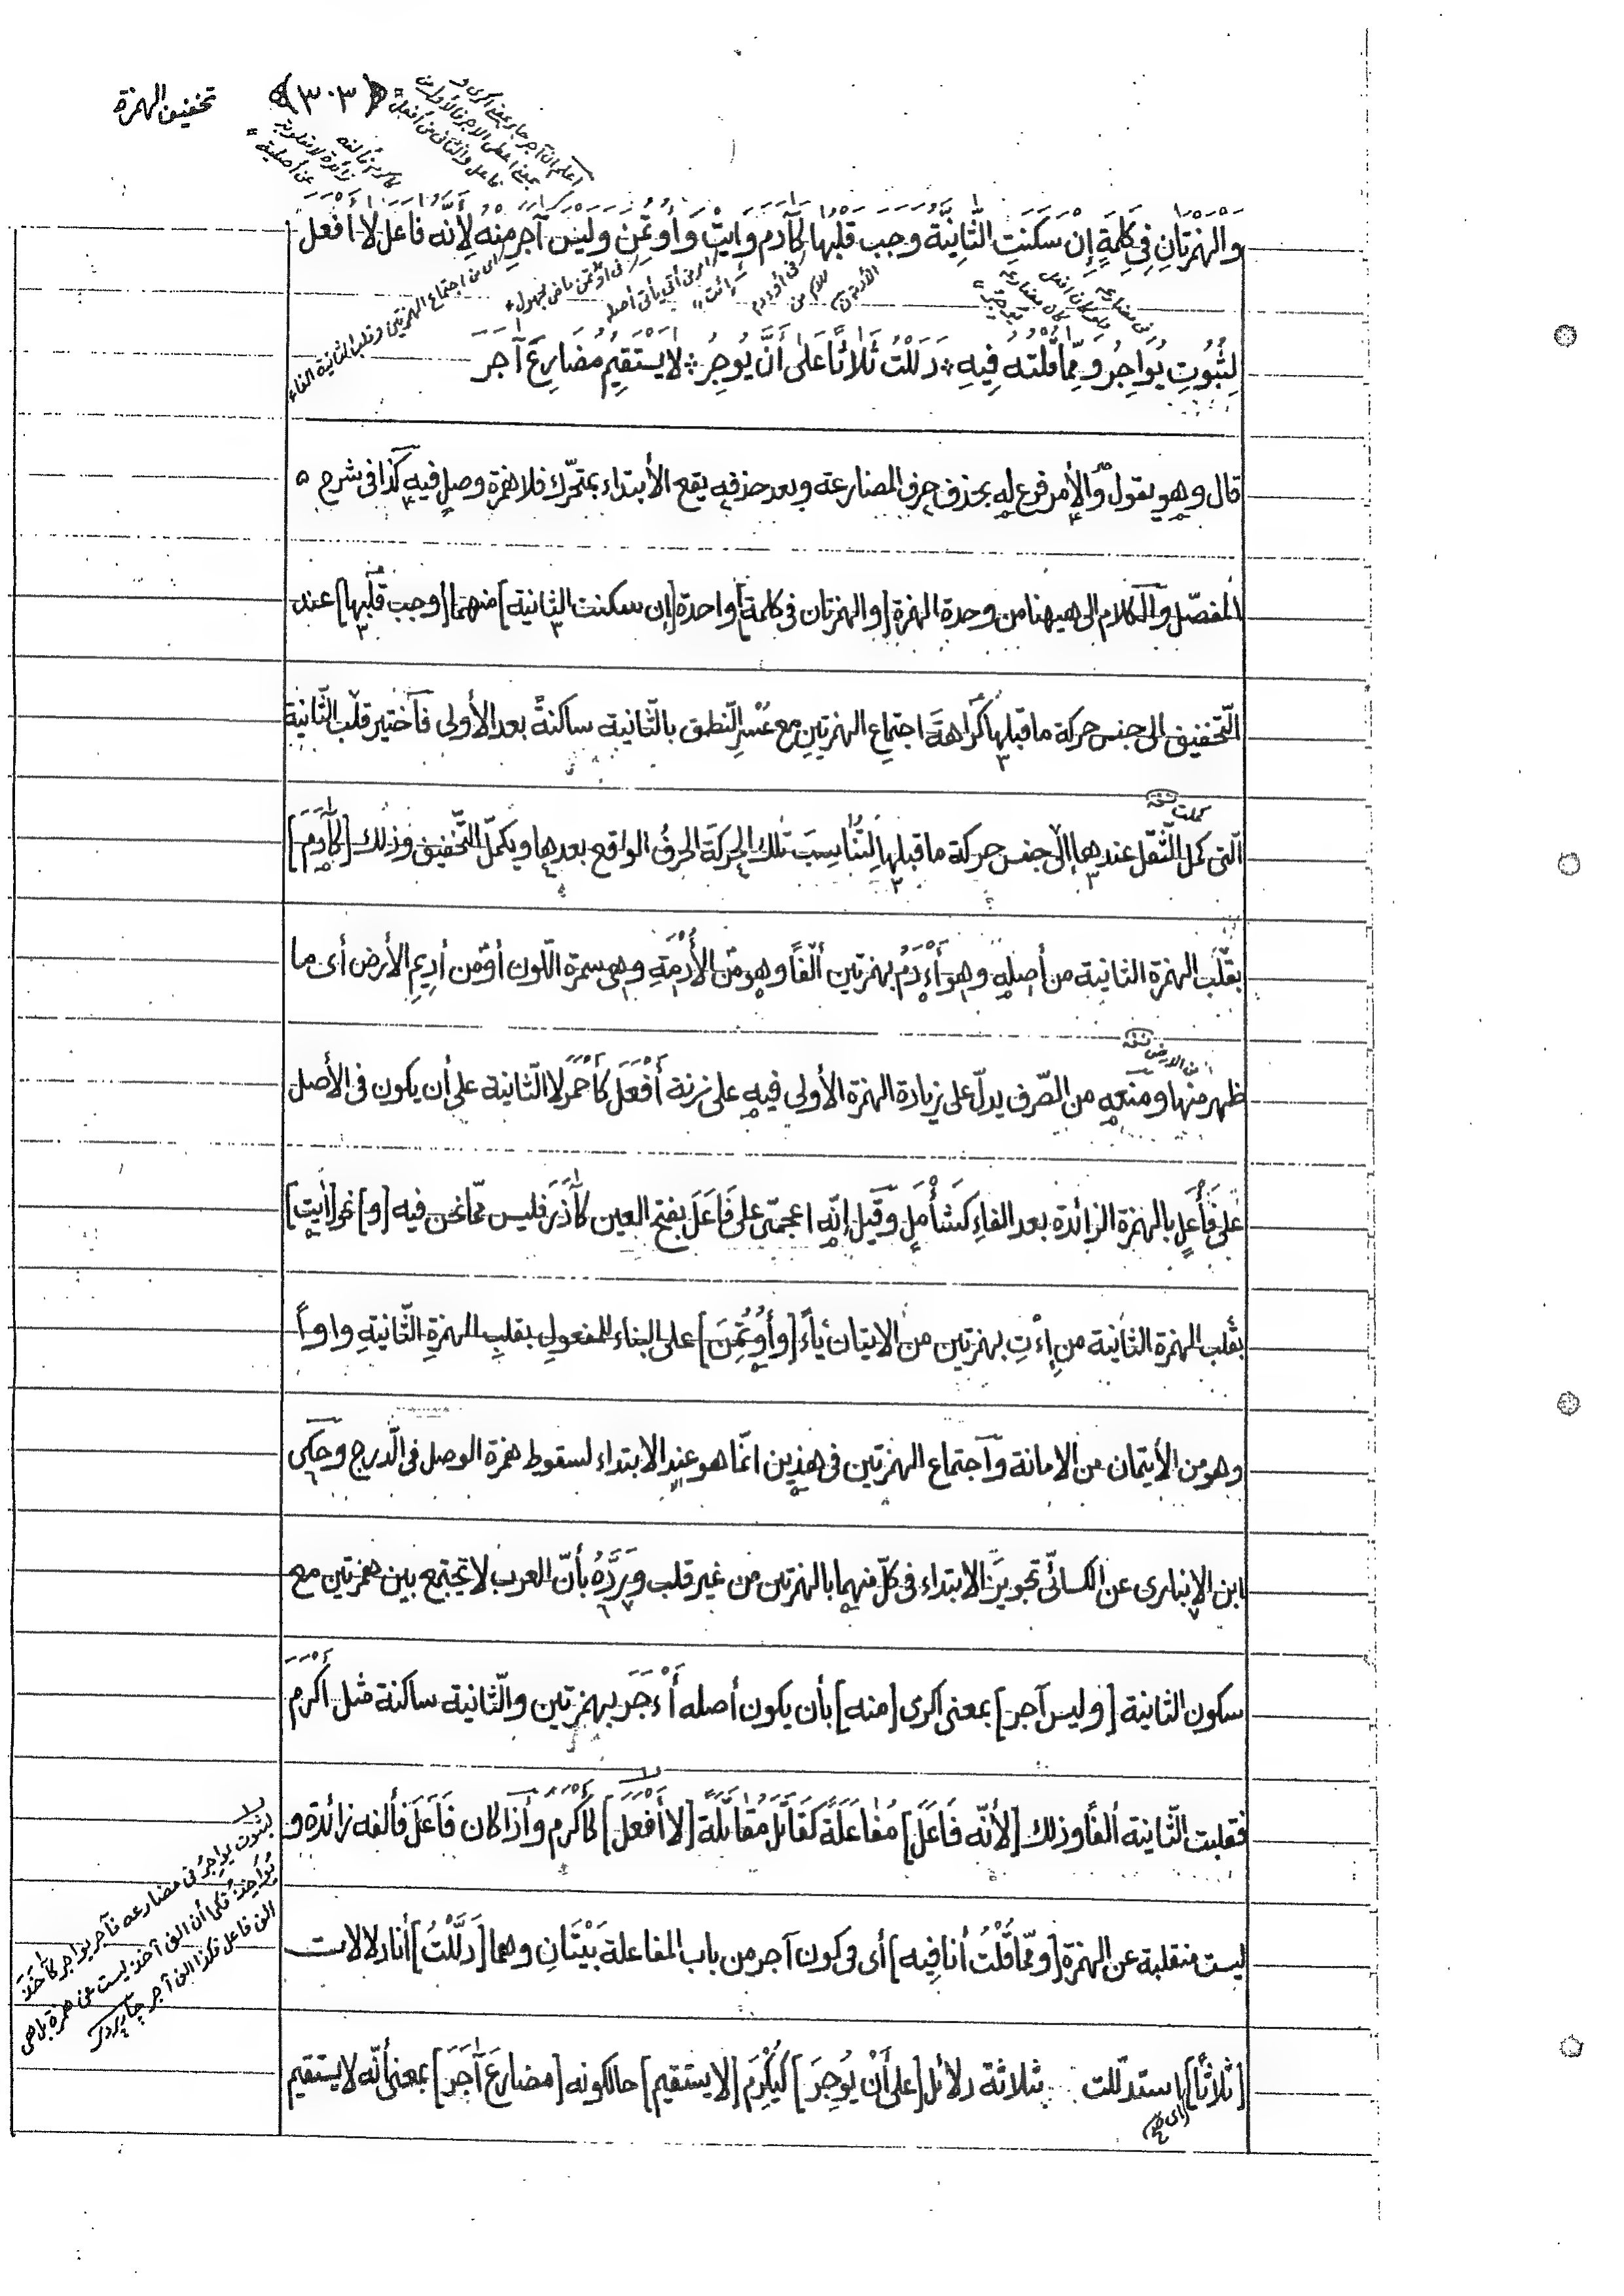 تخفيف الهمزة
﴿٣٠٣﴾
والهَمْزَتَانِ فِي كَلِمَةٍ إِنْ سَكَنَتِ الثَّانِيَةُ وَجَبَ قَلْبُها كَآدَم وَايتْ وَأُوتُمِنَ وَلَيْسَ آجَرَ مِنْهُ لِأَنَّه فاعَل لا أَفْعَلَ
لِثُبُوتِ يُوَاجِرُ وَمِمّا قُلْتهُ فِيهِ ؞ دَلَلْتُ ثَلاثًا عَلى أَنَّ يُوجِرُ ؞ لا يَسْتَقِيمُ مُضَارِعَ آجَرَ
قال وهو يقول والأمر فرع له بحذف حرف المضارعة وبعد حذفه يقع الأبتداء بمتحرّك فلا همزة وصل فيه كذا فى شرح
المفصّل والكلام الى هيهنا من وحدة الهمزة [والهمزتان فى كلمة] واحدة [إن سكنت الثانية] منهما [وجب قلبها] عند
التّخفيف الى جنس حركة ما قبلها كراهةَ اجتماع الهمزتين مع عُسْرِ النّطق بالثّانية ساكنةً بعد الأولى فاختير قلب الثّانية
كملت نسخه
الّتى كمل الثّقل عندها إلى جنس حركة ما قبلها لتُناسِبَ تلك الحركةَ الحرفُ الواقع بعدها ويكمل التّخفيف وذلك [كآدَمَ]
بقلب الهمزة الثانية من أصله وهو أءْدَمُ بهمزتين ألفاً وهو من الأُدْمَةِ وهى سمرة اللّون أو من أديم الأرض أى ما
من الارض نسخه
ظهر منها ومنعه من الصّرف يدلّ على زيادة الهمزة الأولى فيه على زنة أَفْعَلَ كأحمر لا الثّانية على أن يكون فى الأصل
على فَأْعَلٍ بالهمزة الزائدة بعد الفاءِ كشَأْمَلٍ وقيل إنّه اعجمىّ على فَاعَلَ بفتح العين كآذَرَ فليس ممّا نحن فيه [و] نحو [ايتِ]
بقلب الهمزة الثانية من إءْتِ بهمزتين من الاتيان ياءً [وأُوتُمِنَ] على البناء للمفعولِ بقلبِ الهمزةِ الثّانيةِ واواً
وهو من الأيتمان من الامانة واجتماع الهمزتين فى هذين انّما هو عند الابتداء لسقوط همزة الوصل فى الدّرج وحكى
ابن الإنبارى عن الكسائىّ تجويزَ الابتداء فى كلّ منهما بالهمزتين من غير قلب ورَدَّهُ بأنّ العرب لا تجتمع بين همزتين مع
سكون الثانية [وليس آجر] بمعنى اكرى [منه] بأن يكون أصله أَءْجَرَ بهمزتين والثّانية ساكنة مثل أَكْرَمَ
فقلبت الثّانية ألفاً وذلك [لأنّه فَاعَلَ] مُفاعَلَةً كَقَاتَلَ مُقاتَلَةً [لا أَفْعَلَ] كأَكْرَمَ واذا كان فَاعَلَ فألفه زائدة و
ليست منقلبة عن الهمزة [وممّا قُلْتُ أنا فِيه] أى فى كون آجر من باب المفاعلة بَيْتَانِ وهما [دَلَلْتُ] أنا دلالات
[ثلاثًا] استدللت ثلاثة دلائل [على أنّ يُوجِرَ] كَيُكْرِمَ [لا يستقيم] حالكونه [مضارعَ آجَرَ] بمعنى أنّه لا يستقيم
لثبوت يواجِرُ فى مضارعه فآجر يواجر كآخذ
يؤاخذ فكما أن الف آخذ ليست عن همزة بل هى
الف فاعل فكذا الف آجر جاربردى